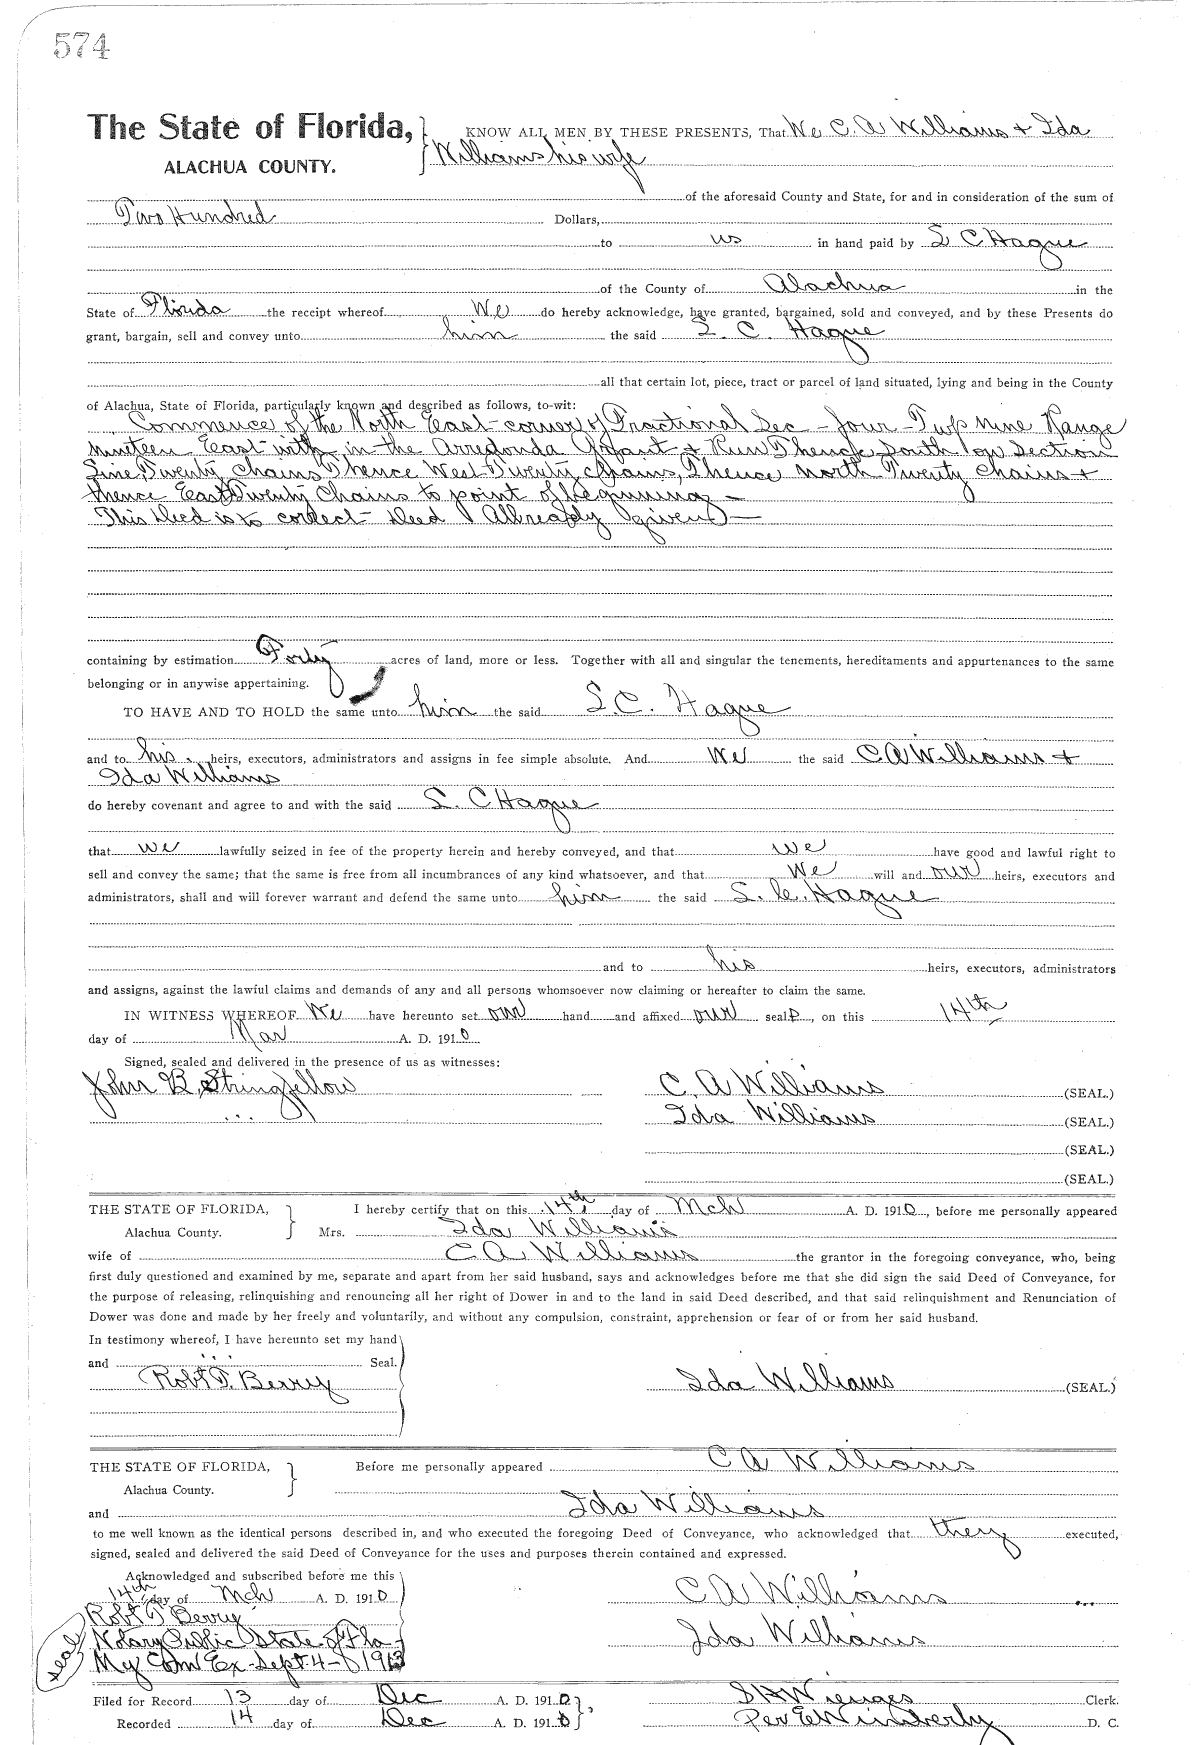 574
The State of Florida, } KNOW ALL MEN BY THESE PRESENTS, That We C. A Williams + Ida
ALACHUA COUNTY. } Williams his wife
of the aforesaid County and State, for and in consideration of the sum of
Two Hundred Dollars,
to us in hand paid by S C Hague
of the County of Alachua in the
State of Florida the receipt whereof We do hereby acknowledge, have granted, bargained, sold and conveyed, and by these Presents do
grant, bargain, sell and convey unto him the said S. C. Hague
all that certain lot, piece, tract or parcel of land situated, lying and being in the County
of Alachua, State of Florida, particularly known and described as follows, to-wit:
Commence of the North East corner of Fractional Sec - four - Twp nine Range
nineteen East with in the Arredonda Grant + Run Thence South on Section
Line Twenty Chains Thence West Twenty Chains, Thence north Twenty Chains +
thence East Twenty Chains to point of beginning -
This Deed is to correct Deed Allready given -
containing by estimation Forty acres of land, more or less. Together with all and singular the tenements, hereditaments and appurtenances to the same
belonging or in anywise appertaining.
TO HAVE AND TO HOLD the same unto him the said S. C. Hague
and to his heirs, executors, administrators and assigns in fee simple absolute. And We the said C A Williams +
Ida Williams
do hereby covenant and agree to and with the said S. C Hague
that we lawfully seized in fee of the property herein and hereby conveyed, and that we have good and lawful right to
sell and convey the same; that the same is free from all incumbrances of any kind whatsoever, and that We will and our heirs, executors and
administrators, shall and will forever warrant and defend the same unto him the said S. C. Hague
and to his heirs, executors, administrators
and assigns, against the lawful claims and demands of any and all persons whomsoever now claiming or hereafter to claim the same.
IN WITNESS WHEREOF We have hereunto set our hand and affixed our seals, on this 14th
day of Mar A. D. 1910
Signed, sealed and delivered in the presence of us as witnesses:
John B. Stringfellow C. A Williams (SEAL.)
Ida Williams (SEAL.)
(SEAL.)
(SEAL.)
THE STATE OF FLORIDA, } I hereby certify that on this 14th day of Mch A. D. 1910, before me personally appeared
Alachua County. } Mrs. Ida Williams
wife of C A Williams the grantor in the foregoing conveyance, who, being
first duly questioned and examined by me, separate and apart from her said husband, says and acknowledges before me that she did sign the said Deed of Conveyance, for
the purpose of releasing, relinquishing and renouncing all her right of Dower in and to the land in said Deed described, and that said relinquishment and Renunciation of
Dower was done and made by her freely and voluntarily, and without any compulsion, constraint, apprehension or fear of or from her said husband.
In testimony whereof, I have hereunto set my hand
and Seal.
Robt T. Berry Ida Williams (SEAL.)
THE STATE OF FLORIDA, } Before me personally appeared C A Williams
Alachua County. }
and Ida Williams
to me well known as the identical persons described in, and who executed the foregoing Deed of Conveyance, who acknowledged that they executed,
signed, sealed and delivered the said Deed of Conveyance for the uses and purposes therein contained and expressed.
Acknowledged and subscribed before me this
14th day of Mch A. D. 1910 C A Williams
Robt T Berry
Notary Public State of Fla Ida Williams
seal My Com Ex Sept 4- 1913
Filed for Record 13 day of Dec A. D. 1910 S H Wienges Clerk.
Recorded 14 day of Dec A. D. 1910 Per E Wimberly D. C.